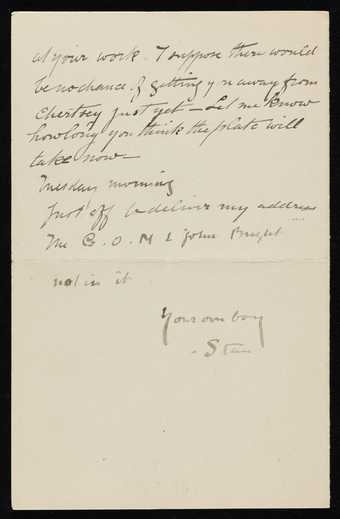 at your work. I suppose there would
be no chance of getting you away from
Chertsey just yet – Let me know
how long you think the plate will
take now –
Tuesday morning
Just off to deliver my address
The G. O. M & John Bright
not in it
Your own boy
- Stan